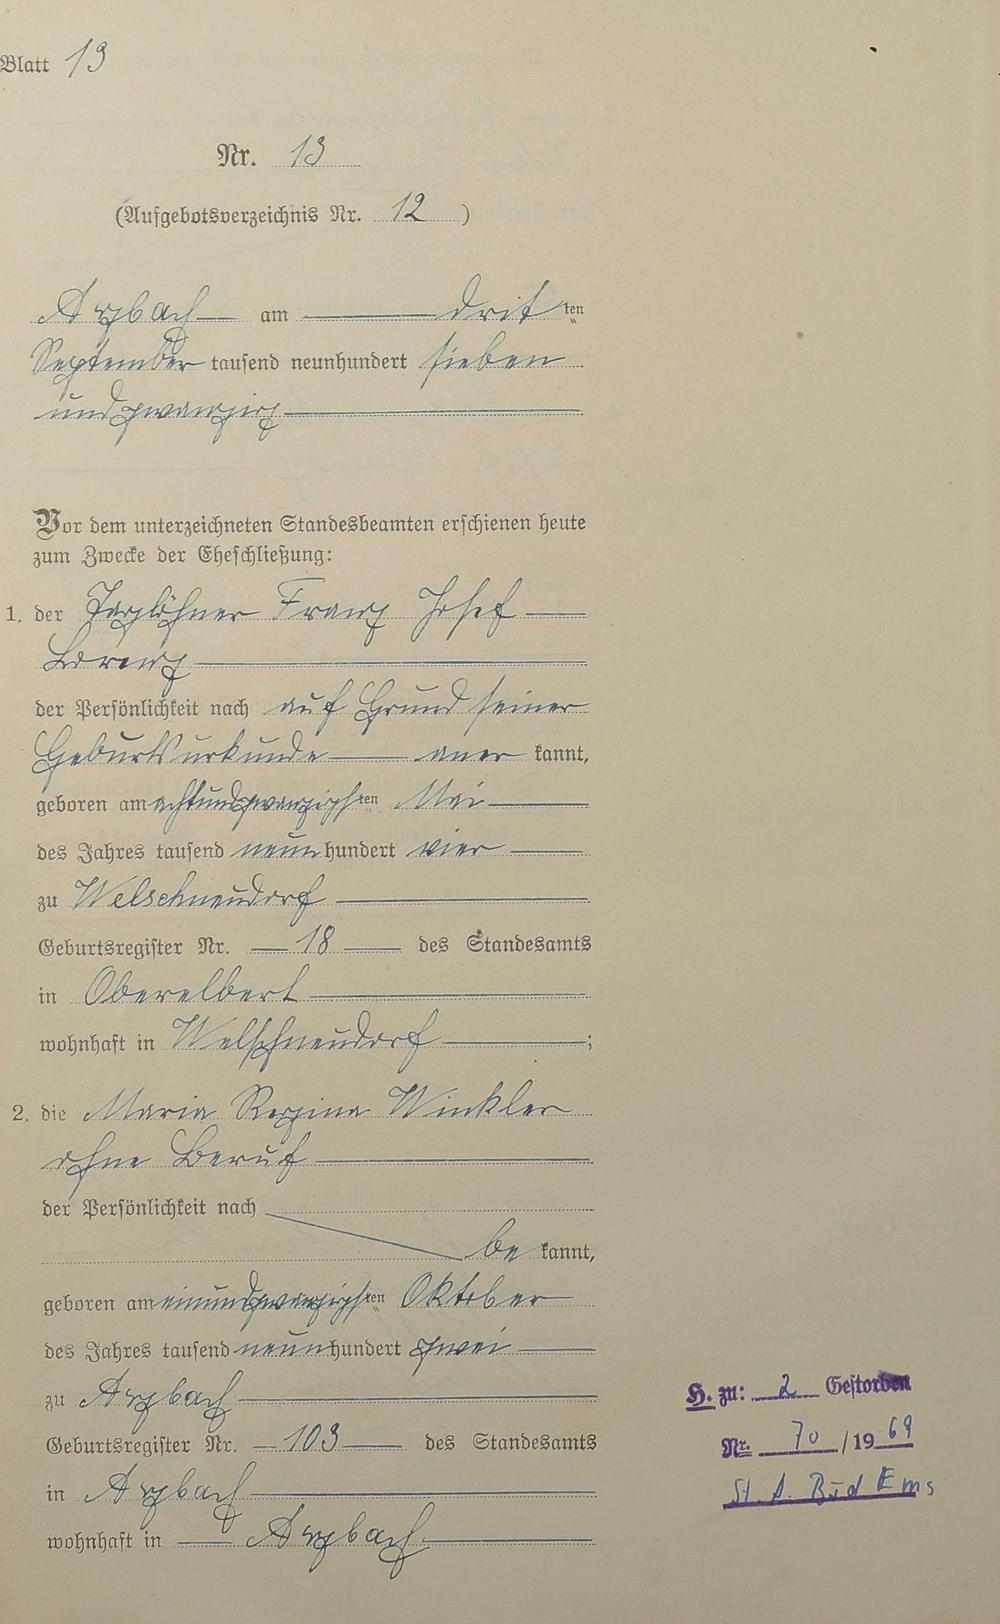 Blatt 13
Nr. 13
(Aufgebotsverzeichnis Nr. 12 )
Arzbach am drit ten
September tausend neunhundert sieben
und zwanzig
Vor dem unterzeichneten Standesbeamten erschienen heute
zum Zwecke der Eheschließung:
1. der Taglöhner Franz Josef
Lorenz
der Persönlichkeit nach auf Grund seiner
Geburtsurkunde aner kannt,
geboren am achtundzwanzigsten Mai
des Jahres tausend neun hundert vier
zu Welschneudorf
Geburtsregister Nr. 18 des Standesamts
in Oberelbert
wohnhaft in Welschneudorf ;
2. die Maria Regina Winkler
ohne Beruf
der Persönlichkeit nach
be kannt,
geboren am einundzwanzigsten Oktober
des Jahres tausend neun hundert zwei
zu Arzbach
Geburtsregister Nr. 103 des Standesamts
in Arzbach
wohnhaft in Arzbach
H. zu: 2 Gestorben
Nr. 70 /19 69
St. A. Bad Ems